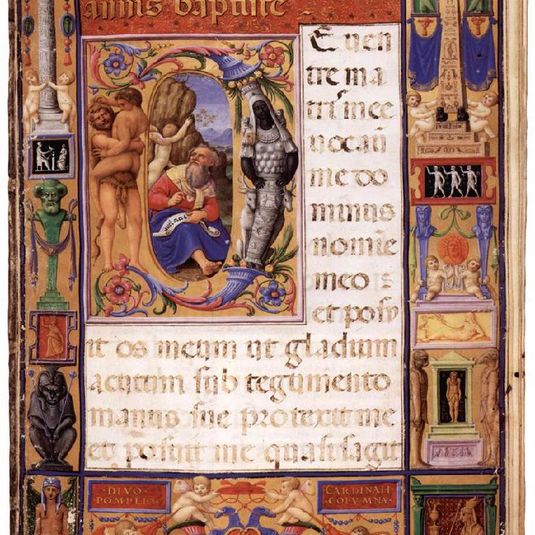 annis baptiste
E ven
tre ma
tris mee
vocavit
me do
minus
nomie
meo z
et posu
it os meum ut gladium
acutum sub tegumento
manus sue protexit me
et posuit me quasi sagit
DIVO
POMPEIO
CARDINALI
COLVMNA